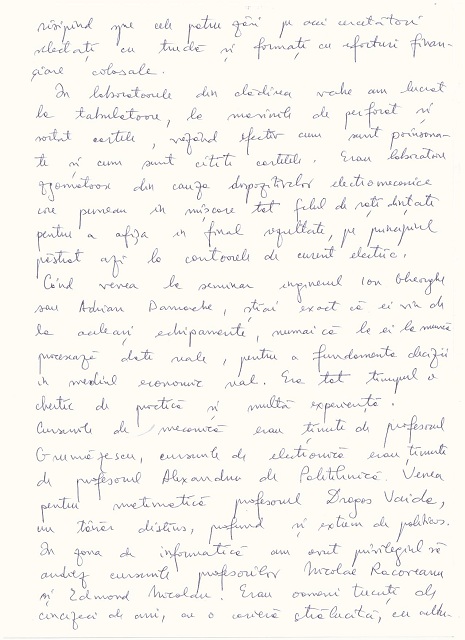 risipind spre cele patru zări pe acei cercetători
selectați cu trudă și formați cu eforturi finan-
ciare colosale.
In laboratoarele din clădirea veche am lucrat
la tabulatoare, la mașinile de perforat și
sortat cartele, văzând efectiv cum sunt poansona-
te și cum sunt citite cartelele. Erau laboratoare
zgomotoase din cauza dispozitivelor electromecanice
care puneau în mișcare tot felul de roți dințate
pentru a afișa în final rezultate, pe principiul
păstrat azi la contoarele de curent electric.
Când venea la seminar inginerul Ion Gheorghe
sau Adrian Damache, știai exact că ei vin de
la aceleași echipamente, numai că la ei la muncă
procesează date reale, pentru a fundamenta decizii
în mediul economic real. Era tot timpul o
chestie de practică și multă experiență.
Cursurile de mecanică erau ținute de profesorul
Grumăzescu, cursurile de electronică erau ținute
de profesorul Alexandru de Politehnică. Venea
pentru matematică profesorul Dragoș Vaida,
un tânăr distins, profund și extrem de politicos.
In zona de informatică am avut privilegiul să
audiez cursurile profesorilor Nicolae Racoveanu
și Edmond Nicolau. Erau oameni trecuți de
cincizeci de ani, cu o carieră strălucită, cu